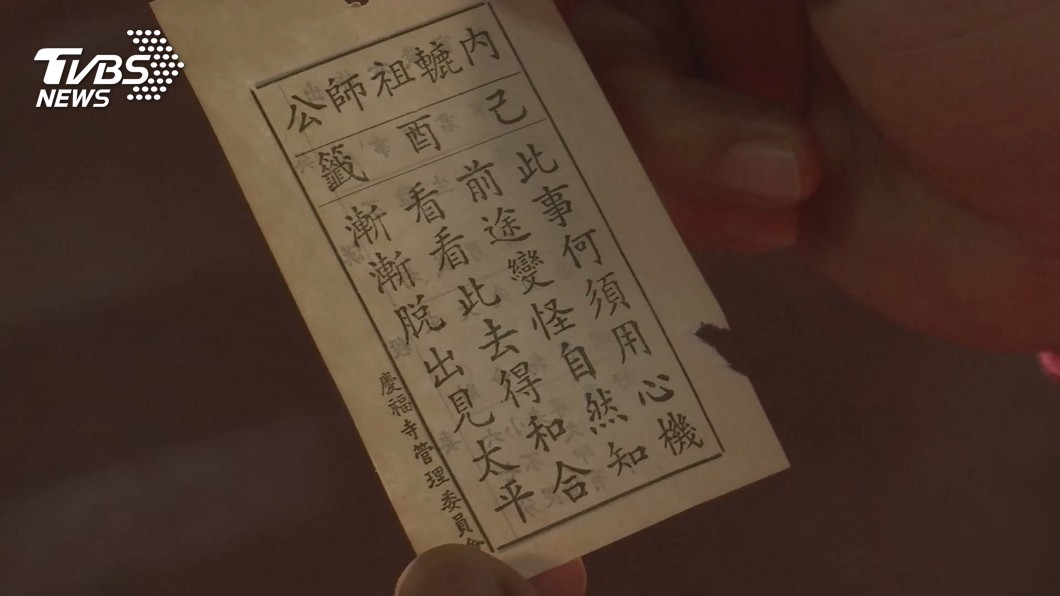 TVBS
NEWS
內轆祖師公
己酉籤
此事何須用心機
前途變怪自然知
看看此去得和合
漸漸脫出見太平
慶福寺管理委員會